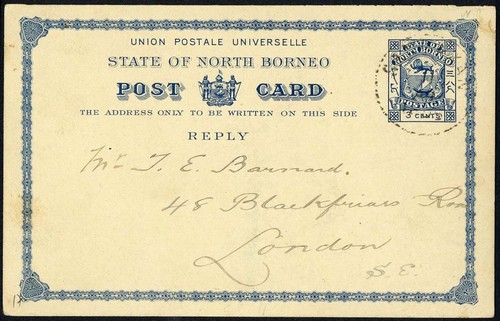 UNION POSTALE UNIVERSELLE
STATE OF NORTH BORNEO
POST CARD
THE ADDRESS ONLY TO BE WRITTEN ON THIS SIDE
REPLY
STATE OF
NORTH BORNEO
POSTAGE
3 CENTS
Mr. T. E. Barnard.
48 Blackfriars
London
S. E.